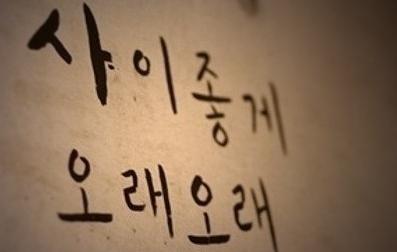 사이좋게
오래오래